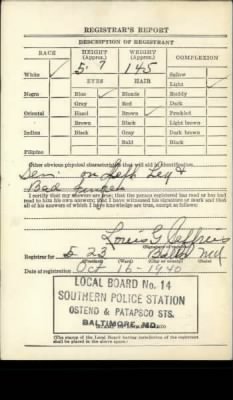 REGISTRAR'S REPORT
DESCRIPTION OF REGISTRANT
RACE HEIGHT (Approx.) WEIGHT (Approx.) COMPLEXION
5' 7 145
White Sallow
EYES HAIR Light
Negro Blue Blonde Ruddy
Gray Red Dark
Oriental Hazel Brown Freckled
Brown Black Light brown
Indian Black Gray Dark brown
Bald Black
Filipino
Other obvious physical characteristics that will aid in identification
on Left Leg &
Bad
I certify that my answers are true; that the person registered has read or has had
read to him his own answers; that I have witnessed his signature or mark and that
all of his answers of which I have knowledge are true, except as follows:
Louis G. Jeffries
Registrar for 5 23 Balto Md
(Precinct) (Ward) (City or county) (State)
Date of registration Oct 16-1940
LOCAL BOARD No. 14
SOUTHERN POLICE STATION
OSTEND & PATAPSCO STS.
BALTIMORE, MD.
(The stamp of the Local Board having jurisdiction of the registrant
shall be placed in the above space.)